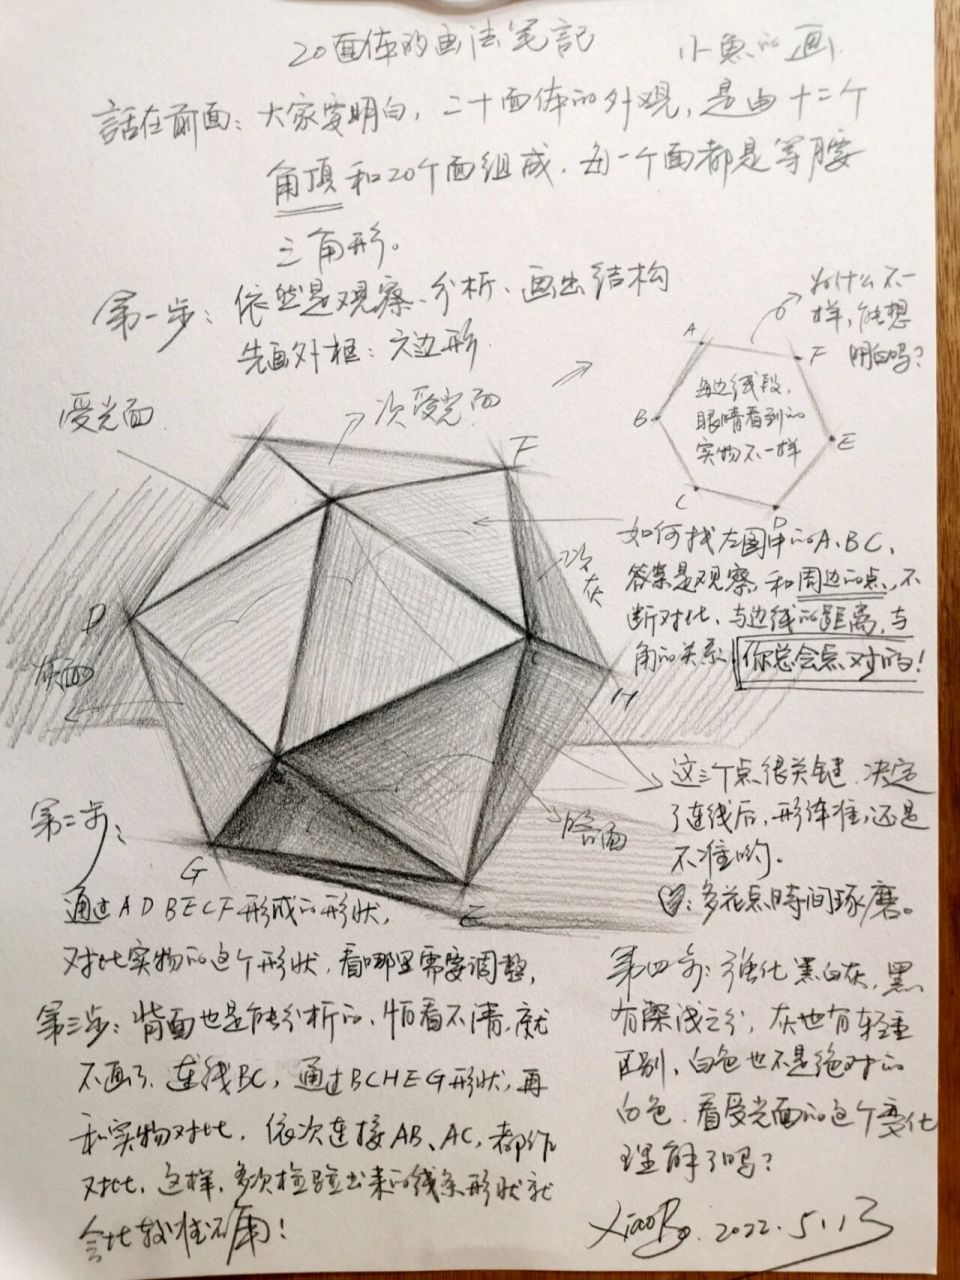 20面体的画法笔記
小魚的画
話在前面：大家要明白，二十面体的外观，是由十二个
角頂和20个面组成．每一个面都是等腰
三角形。
第一步：依然是观察、分析、画出结构
先画外框：六边形．
为什么不一
样，能想
明白吗？
A
F
B
E
C
D
每边线段，
眼睛看到的
实物不一样
受光面
次受光面
F
冷灰
D
灰面
C
H
G
E
暗面
如何找左图中的A、B C、
答案是观察，和周边的点，不
断对比、与边线的距离，与
角的关系，你总会点对的！
这三个点很关键．决定
了连线后，形体准，还是
不准哟。
多花点時间琢磨。
第二步：
通过A D B E C F形成的形状，
对比实物的这个形状，看哪里需要调整，
第三步：背面也是能分析的，怕看不清，就
不画了．连线BC，通过BCHEG形状，再
和实物对比，依次连接AB、AC，都作
对比，这样，多次检验出来的线条形状就
会比较准确！
第四步：强化黑白灰，黑
有深浅之分，灰也有轻重
区别，白色也不是绝对的
白色．看受光面的这个变化
理解了吗？
XiaoBo. 2022. 5.13